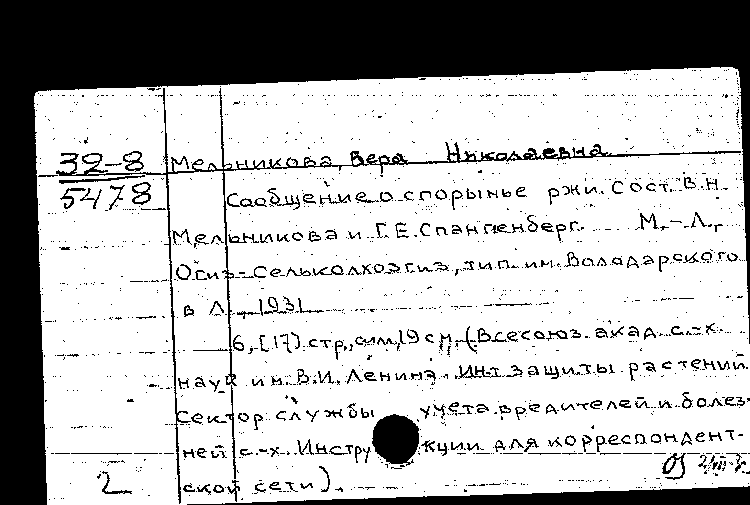 32-8 Мельникова, Вера Николаевна
5478 Сообщение о спорынье ржи. Сост. В.Н.
Мельникова и Г.Е. Спангенберг. М.-Л.,
Огиз-Сельколхозгиз, тип. им. Володарского
в Л., 1931
6, [17] стр., илл, 19 см, (Всесоюз. акад. с.-х.
наук им. В.И. Ленина. Инт защиты растений
Сектор службы учета вредителей и болез-
ней с.-х. Инструкции для корреспондент-
2 ской сети).